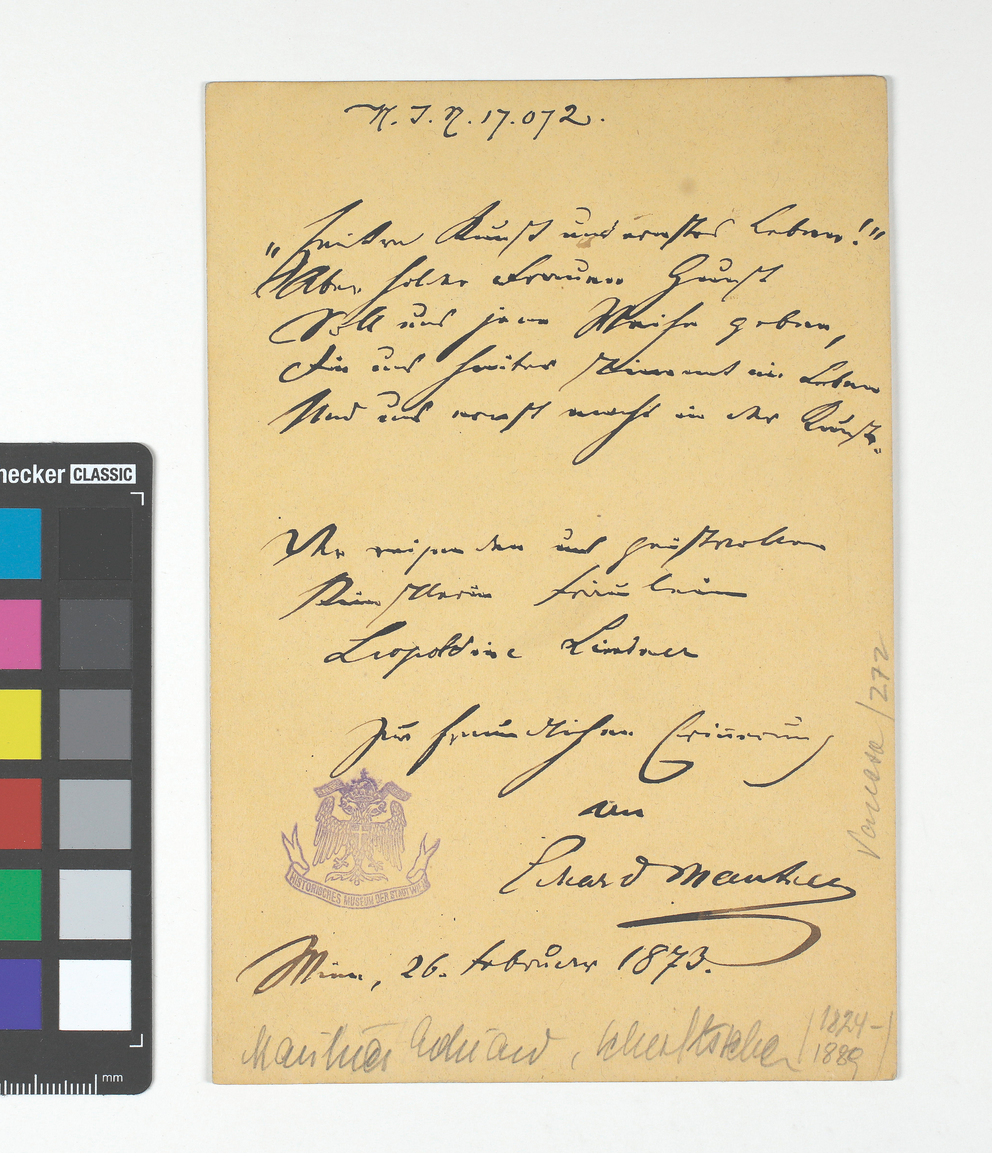 N. I. N. 17.072.
„Heitre Kunst und ernstes Leben!"
Aber holder Frauen Gunst
Soll uns jene Weihe geben,
Die uns heiter stimmt im Leben
Und uns ernst macht in der Kunst.
Der reizenden und geistvollen
Künstlerin Fräulein
Leopoldine Lindner
zur freundlichen Erinnerung
an
Eduard Mautner
Wien, 26. Februar 1873.
HISTORISCHES MUSEUM DER STADT WIEN
Mautner Eduard, Schriftsteller (1824–
1889)
/272
necker CLASSIC
mm